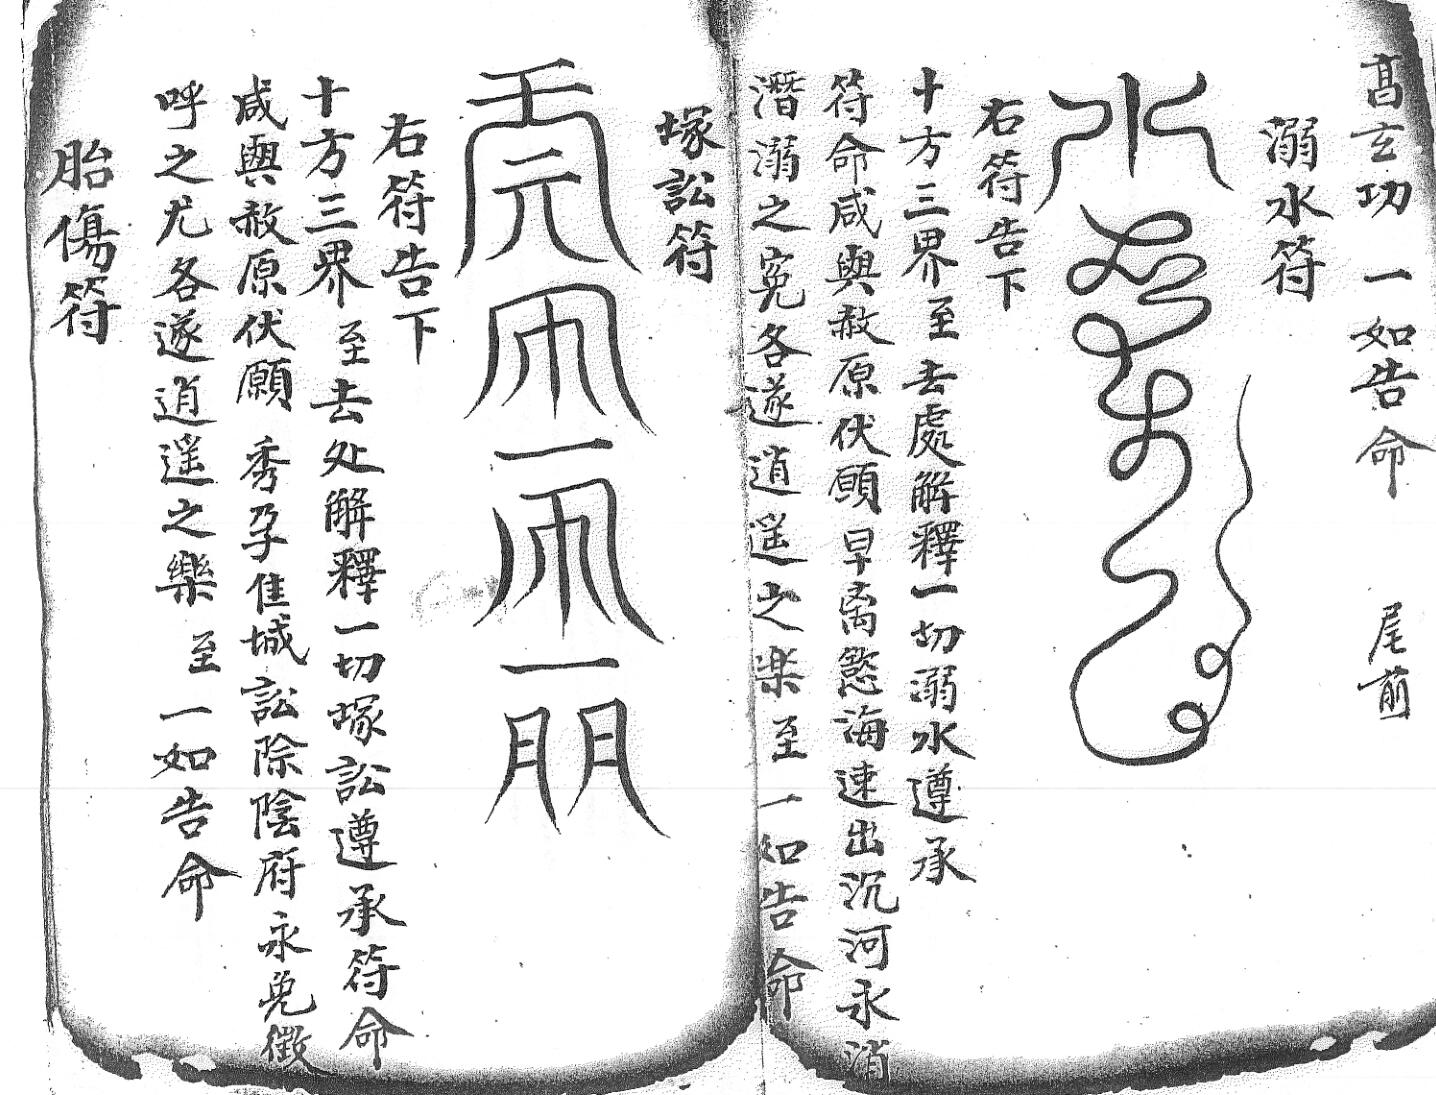 高玄功 一如告命 尾前
溺水符
右符告下
十方三界 至去處解釋一切溺水遵承
符命咸與赦原伏願早离慾海速出沉河永消
潛溺之冤各遂逍遥之楽 至 一如告命
塚訟符
右符告下
十方三界 至去处解釋一切塚訟遵承符命
咸與赦原伏願 秀孕隹城訟除陰府永免徵
呼之尤各遂逍遥之樂 至 一如告命
胎傷符